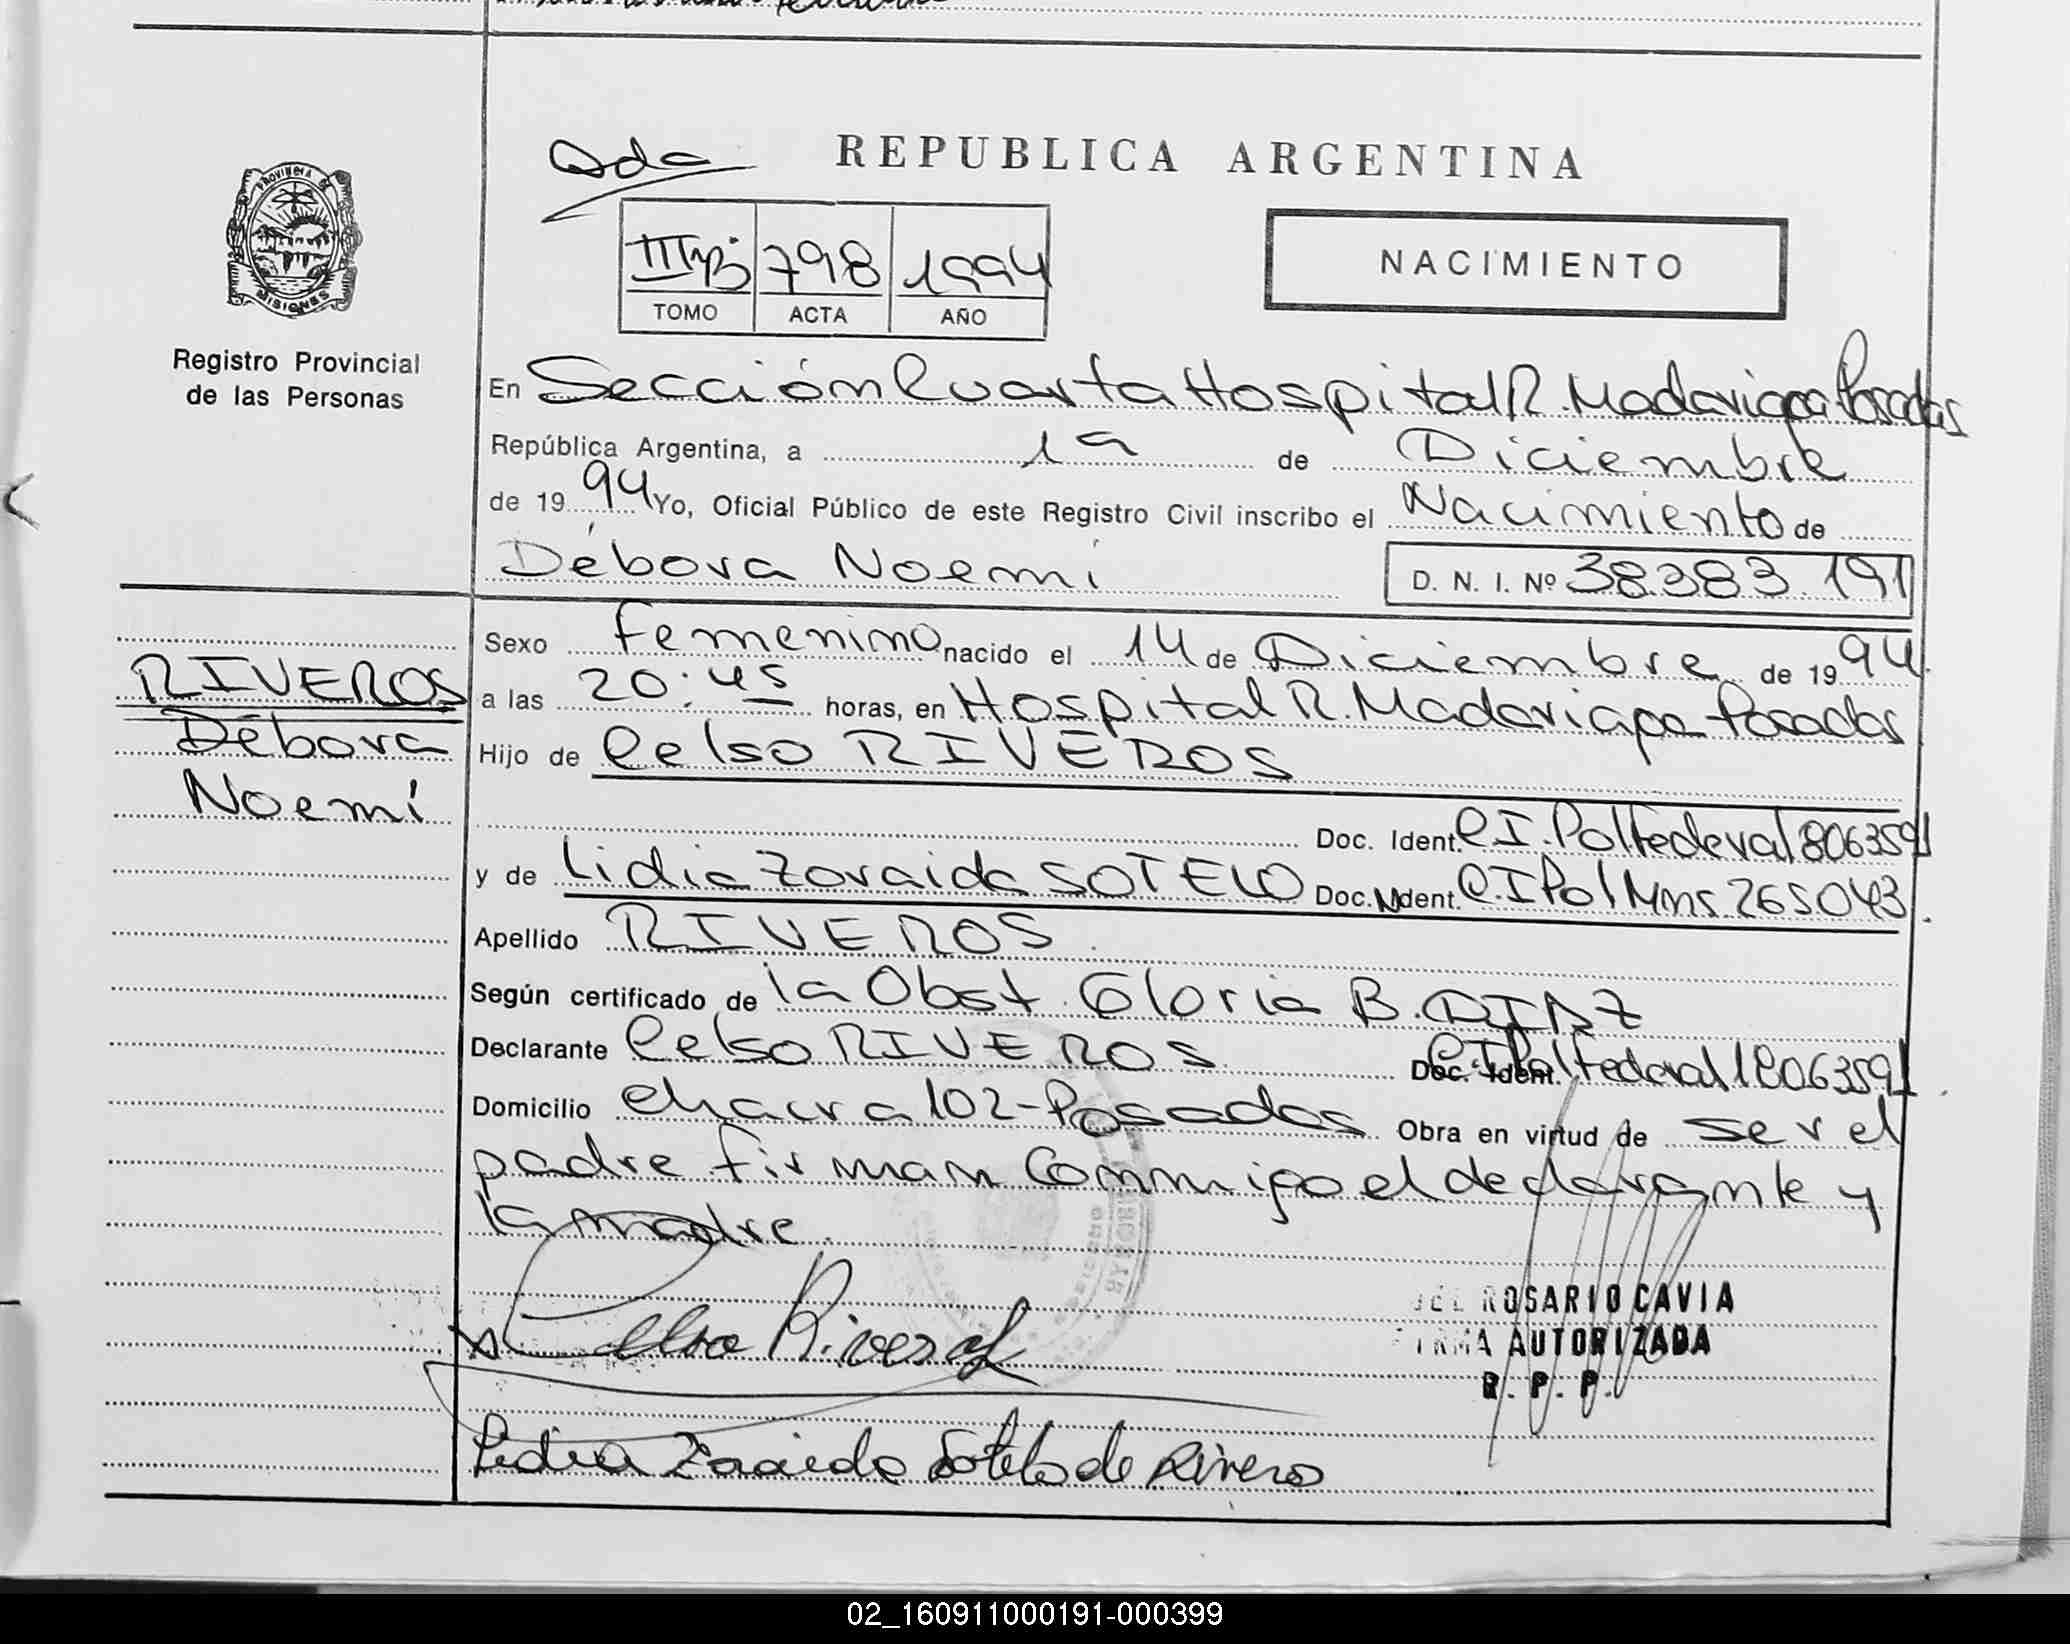 REPUBLICA ARGENTINA
PROVINCIA DE
MISIONES
Registro Provincial
de las Personas
III 798 1994
TOMO ACTA AÑO
NACIMIENTO
En Sección Cuarta Hospital R. Madariaga Posadas
República Argentina, a de Diciembre
de 19 94 Yo, Oficial Público de este Registro Civil inscribo el Nacimiento de
Débora Noemí D. N. I. Nº 38.383.191
Sexo femenino nacido el 14 de Diciembre de 19 94.
RIVEROS
Débora
Noemí
a las 20:45 horas, en Hospital R. Madariaga Posadas
Hijo de Celso RIVEROS
Doc. Ident. C.I. Pol Federal 18063591
y de Lidia Zoraida SOTELO Doc. Ident. C.I Pol Mns 265043.
Apellido RIVEROS
Según certificado de la Obst. Gloria B. DIAZ
Declarante Celso RIVEROS Doc. Ident. C.I Pol Federal 18063591.
Domicilio chacra 102-Posadas Obra en virtud de ser el
padre firman conmigo el declarante y
la madre.
Celso Riveros
DEL ROSARIO CAVIA
FIRMA AUTORIZADA
R. P. P.
Lidia Zoraida Sotelo de Rivero
02_160911000191-000399